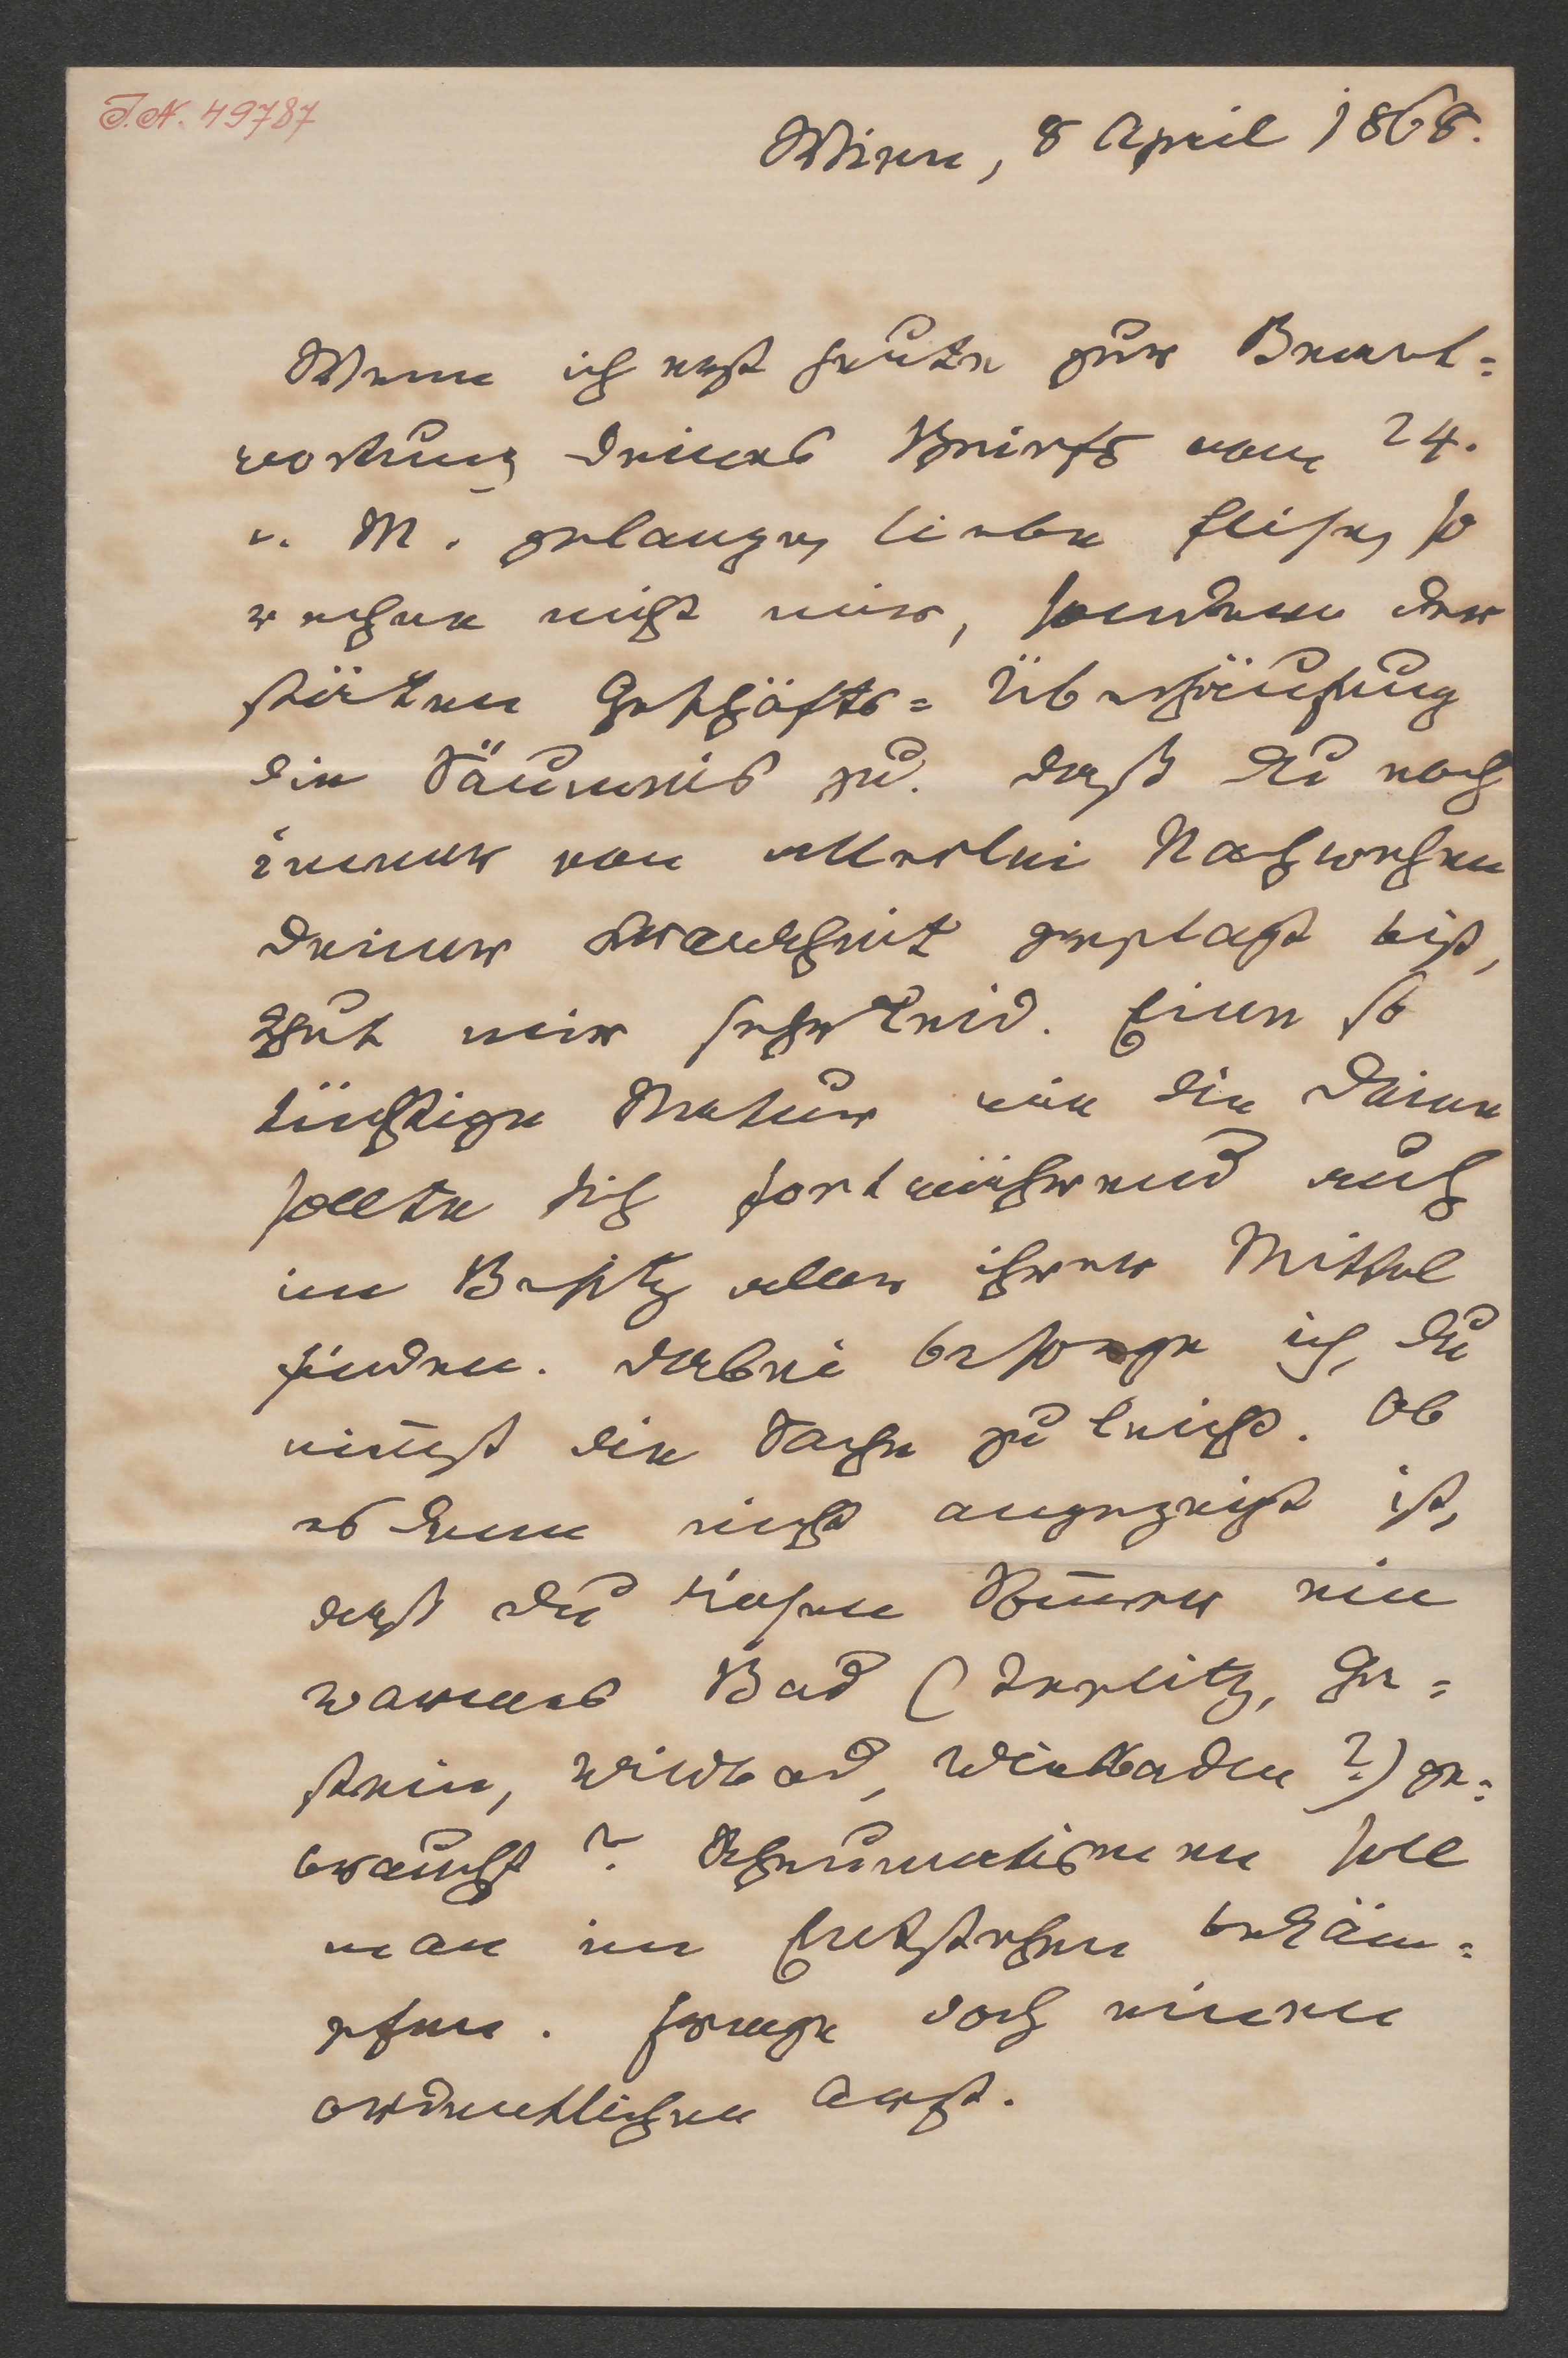 I.N. 49787
Wien, 8 April 1868.
Wenn ich erst heute zur Beant=
wortung Deines Briefs vom 24.
v. M. gelange, liebe Elise, so
rechne nicht mir, sondern der
steten Geschäfts=Überhäufung
die Säumnis zu. Daß Du noch
immer von allerlei Nachwehen
Deiner Krankheit geplagt bist,
thut mir sehr leid. Eine so
tüchtige Natur wie die Deine
sollte sich fortwährend auch
im Besitz aller ihrer Mittel
finden. Dabei besorge ich, Du
nimst die Sache zu leicht. Ob
es denn nicht angezeigt ist,
daß Du diesen Somer ein
warmes Bad (Teplitz, Ga=
stein, Wildbad, Wiesbaden?) ge=
brauchst? Rheumatismen soll
man im Entstehen bekäm=
pfen. Frage doch einen
ordentlichen Arzt.